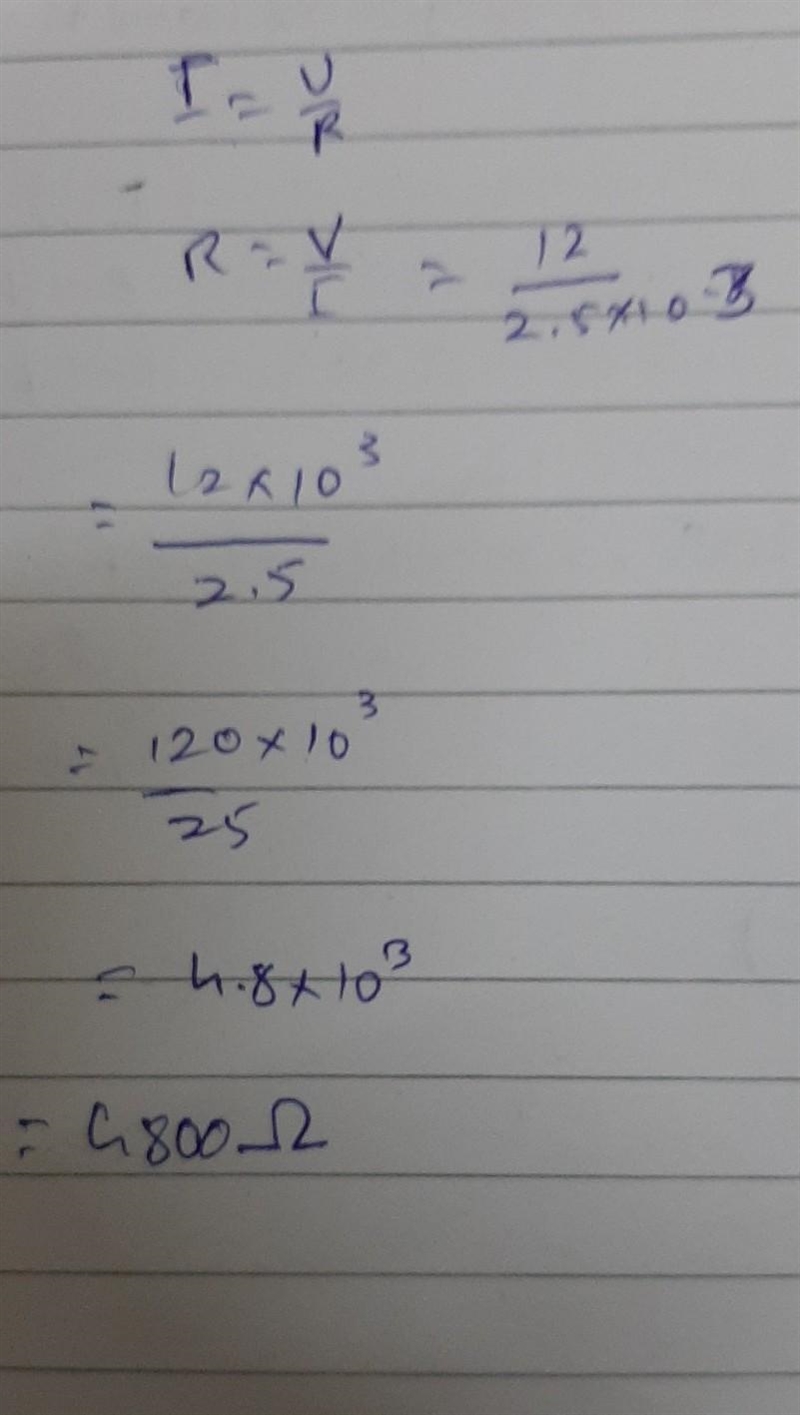 I = V/R
R = V/I = 12/2.5×10-3
= 12×10³/2.5
= 120×10³/25
= 4.8×10³
= 4800Ω